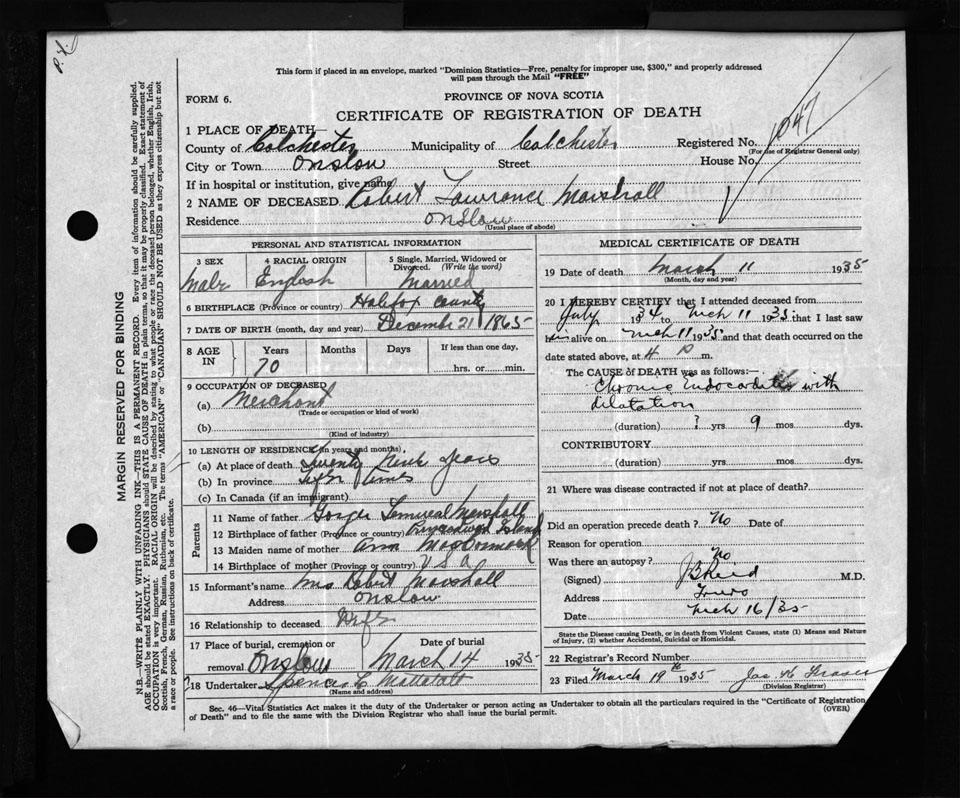 P.X.
This form if placed in an envelope, marked "Dominion Statistics—Free, penalty for improper use, $300," and properly addressed
will pass through the Mail "FREE"
FORM 6.
PROVINCE OF NOVA SCOTIA
CERTIFICATE OF REGISTRATION OF DEATH
1047
1 PLACE OF DEATH—
County of Colchester Municipality of Colchester Registered No.
(For use of Registrar General only)
City or Town Onslow Street House No.
If in hospital or institution, give name
2 NAME OF DECEASED Robert Lawrance Marshall
Residence Onslow
(Usual place of abode)
PERSONAL AND STATISTICAL INFORMATION
3 SEX Male
4 RACIAL ORIGIN English
5 Single, Married, Widowed or Divorced. (Write the word) Married
6 BIRTHPLACE (Province or country) Halifax County
7 DATE OF BIRTH (month, day and year) December 21 1865
8 AGE IN Years Months Days If less than one day,
70 hrs. or min.
9 OCCUPATION OF DECEASED
(a) Merchant
(Trade or occupation or kind of work)
(b)
(Kind of industry)
10 LENGTH OF RESIDENCE (in years and months)
(a) At place of death Twenty Years
(b) In province Life Times
(c) In Canada (if an immigrant)
Parents
11 Name of father Lemueal Marshall
12 Birthplace of father (Province or country) Island
13 Maiden name of mother Ann MacCormack
14 Birthplace of mother (Province or country) U S A
15 Informant's name Mrs Robert Marshall
Address Onslow
16 Relationship to deceased Wife
17 Place of burial, cremation or removal Onslow
Date of burial March 14 1935
18 Undertaker Spencer Mattatall
(Name and address)
MEDICAL CERTIFICATE OF DEATH
19 Date of death March 11 1935
(Month, day and year)
20 I HEREBY CERTIFY that I attended deceased from
July 1934 to Mch 11 1935 that I last saw
him alive on Mch 11 1935 and that death occurred on the
date stated above, at 4 P m.
The CAUSE of DEATH was as follows:—
Chronic Endocarditis with
dilatation
(duration) ? yrs 9 mos. dys.
CONTRIBUTORY
(duration) yrs. mos. dys.
21 Where was disease contracted if not at place of death?
Did an operation precede death? No Date of
Reason for operation
Was there an autopsy? No
(Signed) J B Reid M.D.
Address Truro
Date Mch 16/35
State the Disease causing Death, or in death from Violent Causes, state (1) Means and Nature
of Injury, (2) whether Accidental, Suicidal or Homicidal.
22 Registrar's Record Number
23 Filed March 19th 1935 Jas H Fraser
(Division Registrar)
Sec. 46—Vital Statistics Act makes it the duty of the Undertaker or person acting as Undertaker to obtain all the particulars required in the "Certificate of Registration
of Death" and to file the same with the Division Registrar who shall issue the burial permit.
(OVER)
MARGIN RESERVED FOR BINDING
N.B.—WRITE PLAINLY WITH UNFADING INK—THIS IS A PERMANENT RECORD. Every item of information should be carefully supplied.
AGE should be stated EXACTLY. PHYSICIANS should STATE CAUSE OF DEATH in plain terms, so that it may be properly classified. Exact statement of
OCCUPATION is very important. RACIAL ORIGIN will be described by stating to what people or race the deceased person belonged, whether English, Irish,
Scottish, French, German, Russian, Ruthenian, etc. The terms "AMERICAN" or "CANADIAN" SHOULD NOT BE USED as they express citizenship but not
a race or people. See instructions on back of certificate.